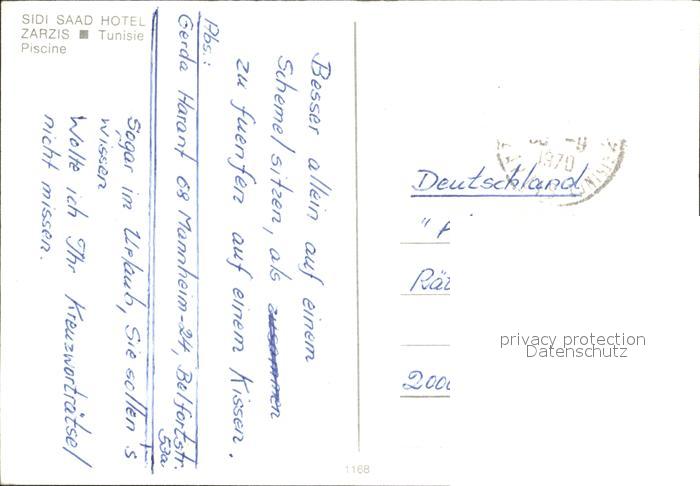 SIDI SAAD HOTEL
ZARZIS ■ Tunisie
Piscine
Besser allein auf einem
Schemel sitzen, als zusammen
zu fuenfen auf einem Kissen.
Abs.:
Gerda Harant 68 Mannheim-24, Belfortstr.
53a
Sogar im Urlaub, Sie sollen's
wissen
Wollte ich Ihr Kreuzworträtsel
nicht missen.
1168
1970
Deutschland
Rät
200
privacy protection
Datenschutz